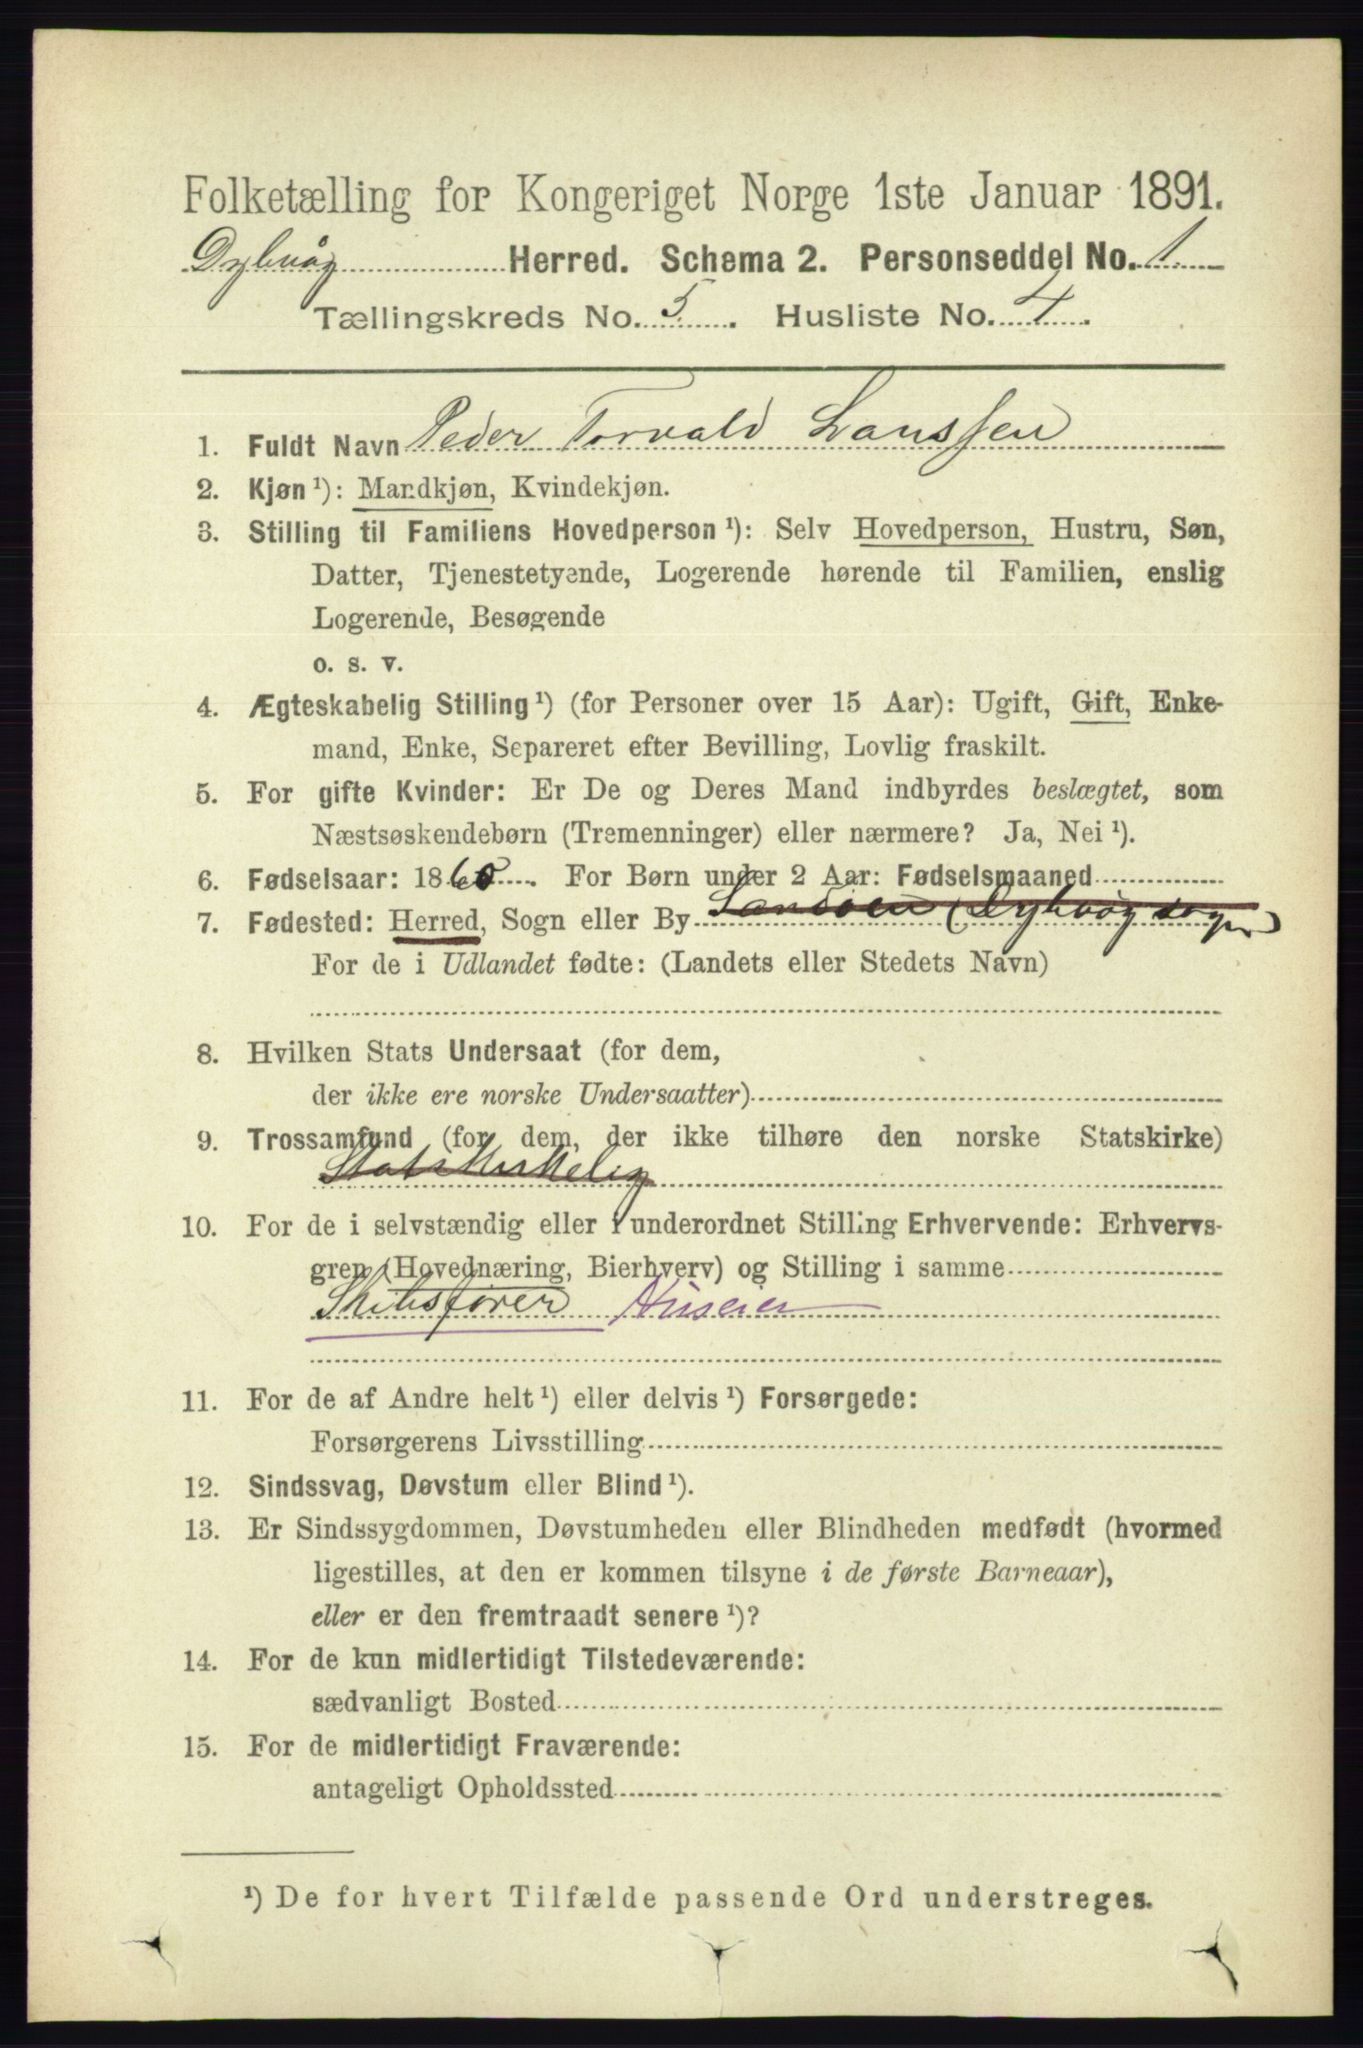 Folketælling for Kongeriget Norge 1ste Januar 1891.
Dybvåg Herred. Schema 2. Personseddel No. 1
Tællingskreds No. 5. Husliste No. 4.
1. Fuldt Navn Peder Torvald Larssen
2. Kjøn ¹): Mandkjøn, Kvindekjøn.
3. Stilling til Familiens Hovedperson ¹): Selv Hovedperson, Hustru, Søn,
Datter, Tjenestetyende, Logerende hørende til Familien, enslig
Logerende, Besøgende
o. s. v.
4. Ægteskabelig Stilling ¹) (for Personer over 15 Aar): Ugift, Gift, Enke-
mand, Enke, Separeret efter Bevilling, Lovlig fraskilt.
5. For gifte Kvinder: Er De og Deres Mand indbyrdes beslægtet, som
Næstsøskendebørn (Tremenninger) eller nærmere? Ja, Nei ¹).
6. Fødselsaar: 1860. For Børn under 2 Aar: Fødselsmaaned
7. Fødested: Herred, Sogn eller By Sandøen (Dybvåg sogn)
For de i Udlandet fødte: (Landets eller Stedets Navn)
8. Hvilken Stats Undersaat (for dem,
der ikke ere norske Undersaatter)
9. Trossamfund (for dem, der ikke tilhøre den norske Statskirke)
Statskirkelig
10. For de i selvstændig eller i underordnet Stilling Erhvervende: Erhvervs-
gren (Hovednæring, Bierhverv) og Stilling i samme
Skibsfører Huseier
11. For de af Andre helt ¹) eller delvis ¹) Forsørgede:
Forsørgerens Livsstilling
12. Sindssvag, Døvstum eller Blind ¹).
13. Er Sindssygdommen, Døvstumheden eller Blindheden medfødt (hvormed
ligestilles, at den er kommen tilsyne i de første Barneaar),
eller er den fremtraadt senere ¹)?
14. For de kun midlertidigt Tilstedeværende:
sædvanligt Bosted
15. For de midlertidigt Fraværende:
antageligt Opholdssted
¹) De for hvert Tilfælde passende Ord understreges.